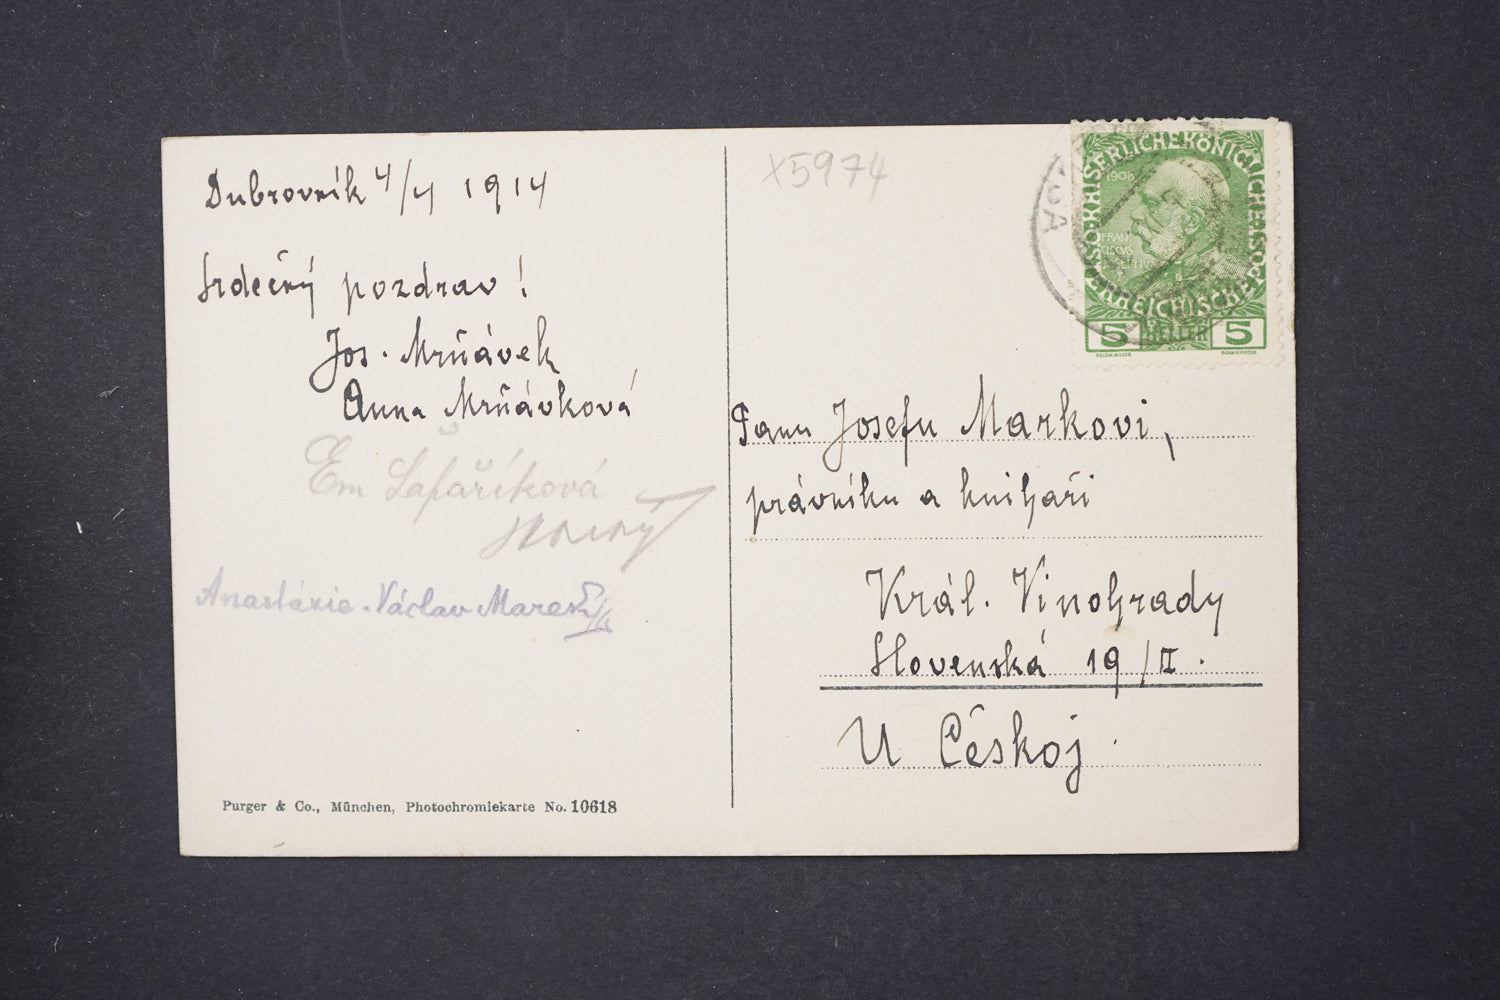 Dubrovník 4/4 1914
Srdečný pozdrav!
Jos. Mrňávek
Anna Mrňávková
Em Šafaříková
Anastázie Václav Mareš
Purger & Co., München, Photochromiekarte No. 10618
X5974
KAISERLICHE KÖNIGLICHE ÖSTERREICHISCHE POST
1908
5 HELLER 5
Panu Josefu Markovi,
právníku a knihaři
Král. Vinohrady
Slovenská 19/II.
U Českoj